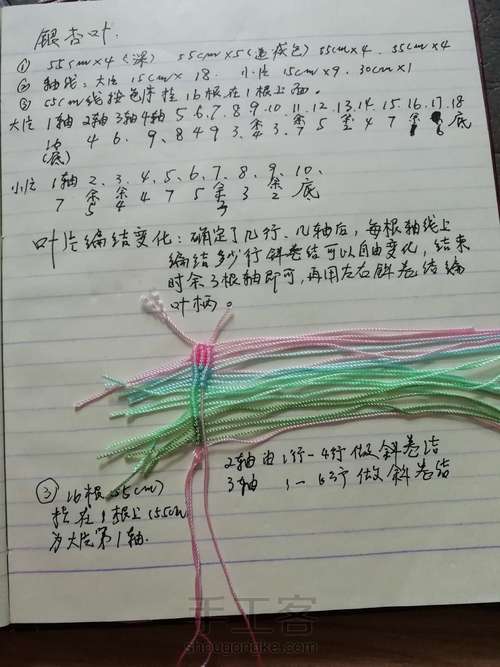 银杏叶:
① 55cm×4(深) 55cm×5(渐成色) 55cm×4. 55cm×4
② 轴线:大片 15cm×18. 小片 15cm×9. 30cm×1
③ 55cm线按色序挂16根在1根上面。
大片 1轴 2轴 3轴 4轴 5 6. 7. 8. 9. 10. 11. 12. 13. 14. 15. 16. 17. 18
16 4 6. 9. 8 4 9 3. 余4. 3. 余7 5 余 4 7 余 6 底
(底)
小片 1轴 2、3、4、5、6、7、8、9、10、
7 余5 余4 4 7 5 余3 3 余2 底
叶片编结变化:确定了几行、几轴后,每根轴线上
编结多少行斜卷结可以自由变化,结束
时余3根轴即可,再用左右斜卷结编
叶柄。
2轴由1行-4行做斜卷结
3轴 1-6行做斜卷结
③ 16根(55cm)
挂在1根上(55cm
为大片第1轴.
手工客
shougongke.com